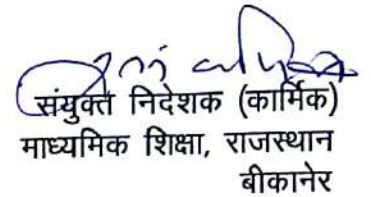 संयुक्त निदेशक (कार्मिक)
माध्यमिक शिक्षा, राजस्थान
बीकानेर